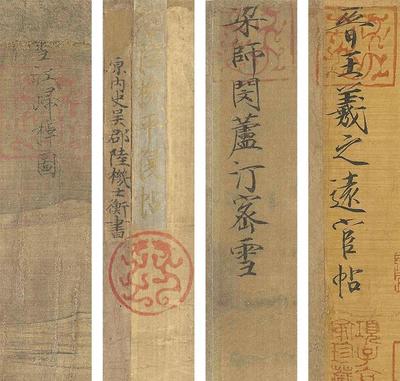 晉王羲之遠宦帖
梁師閔蘆汀密雪
平復帖
原内史吳郡陸機士衡書
雪江歸棹圖